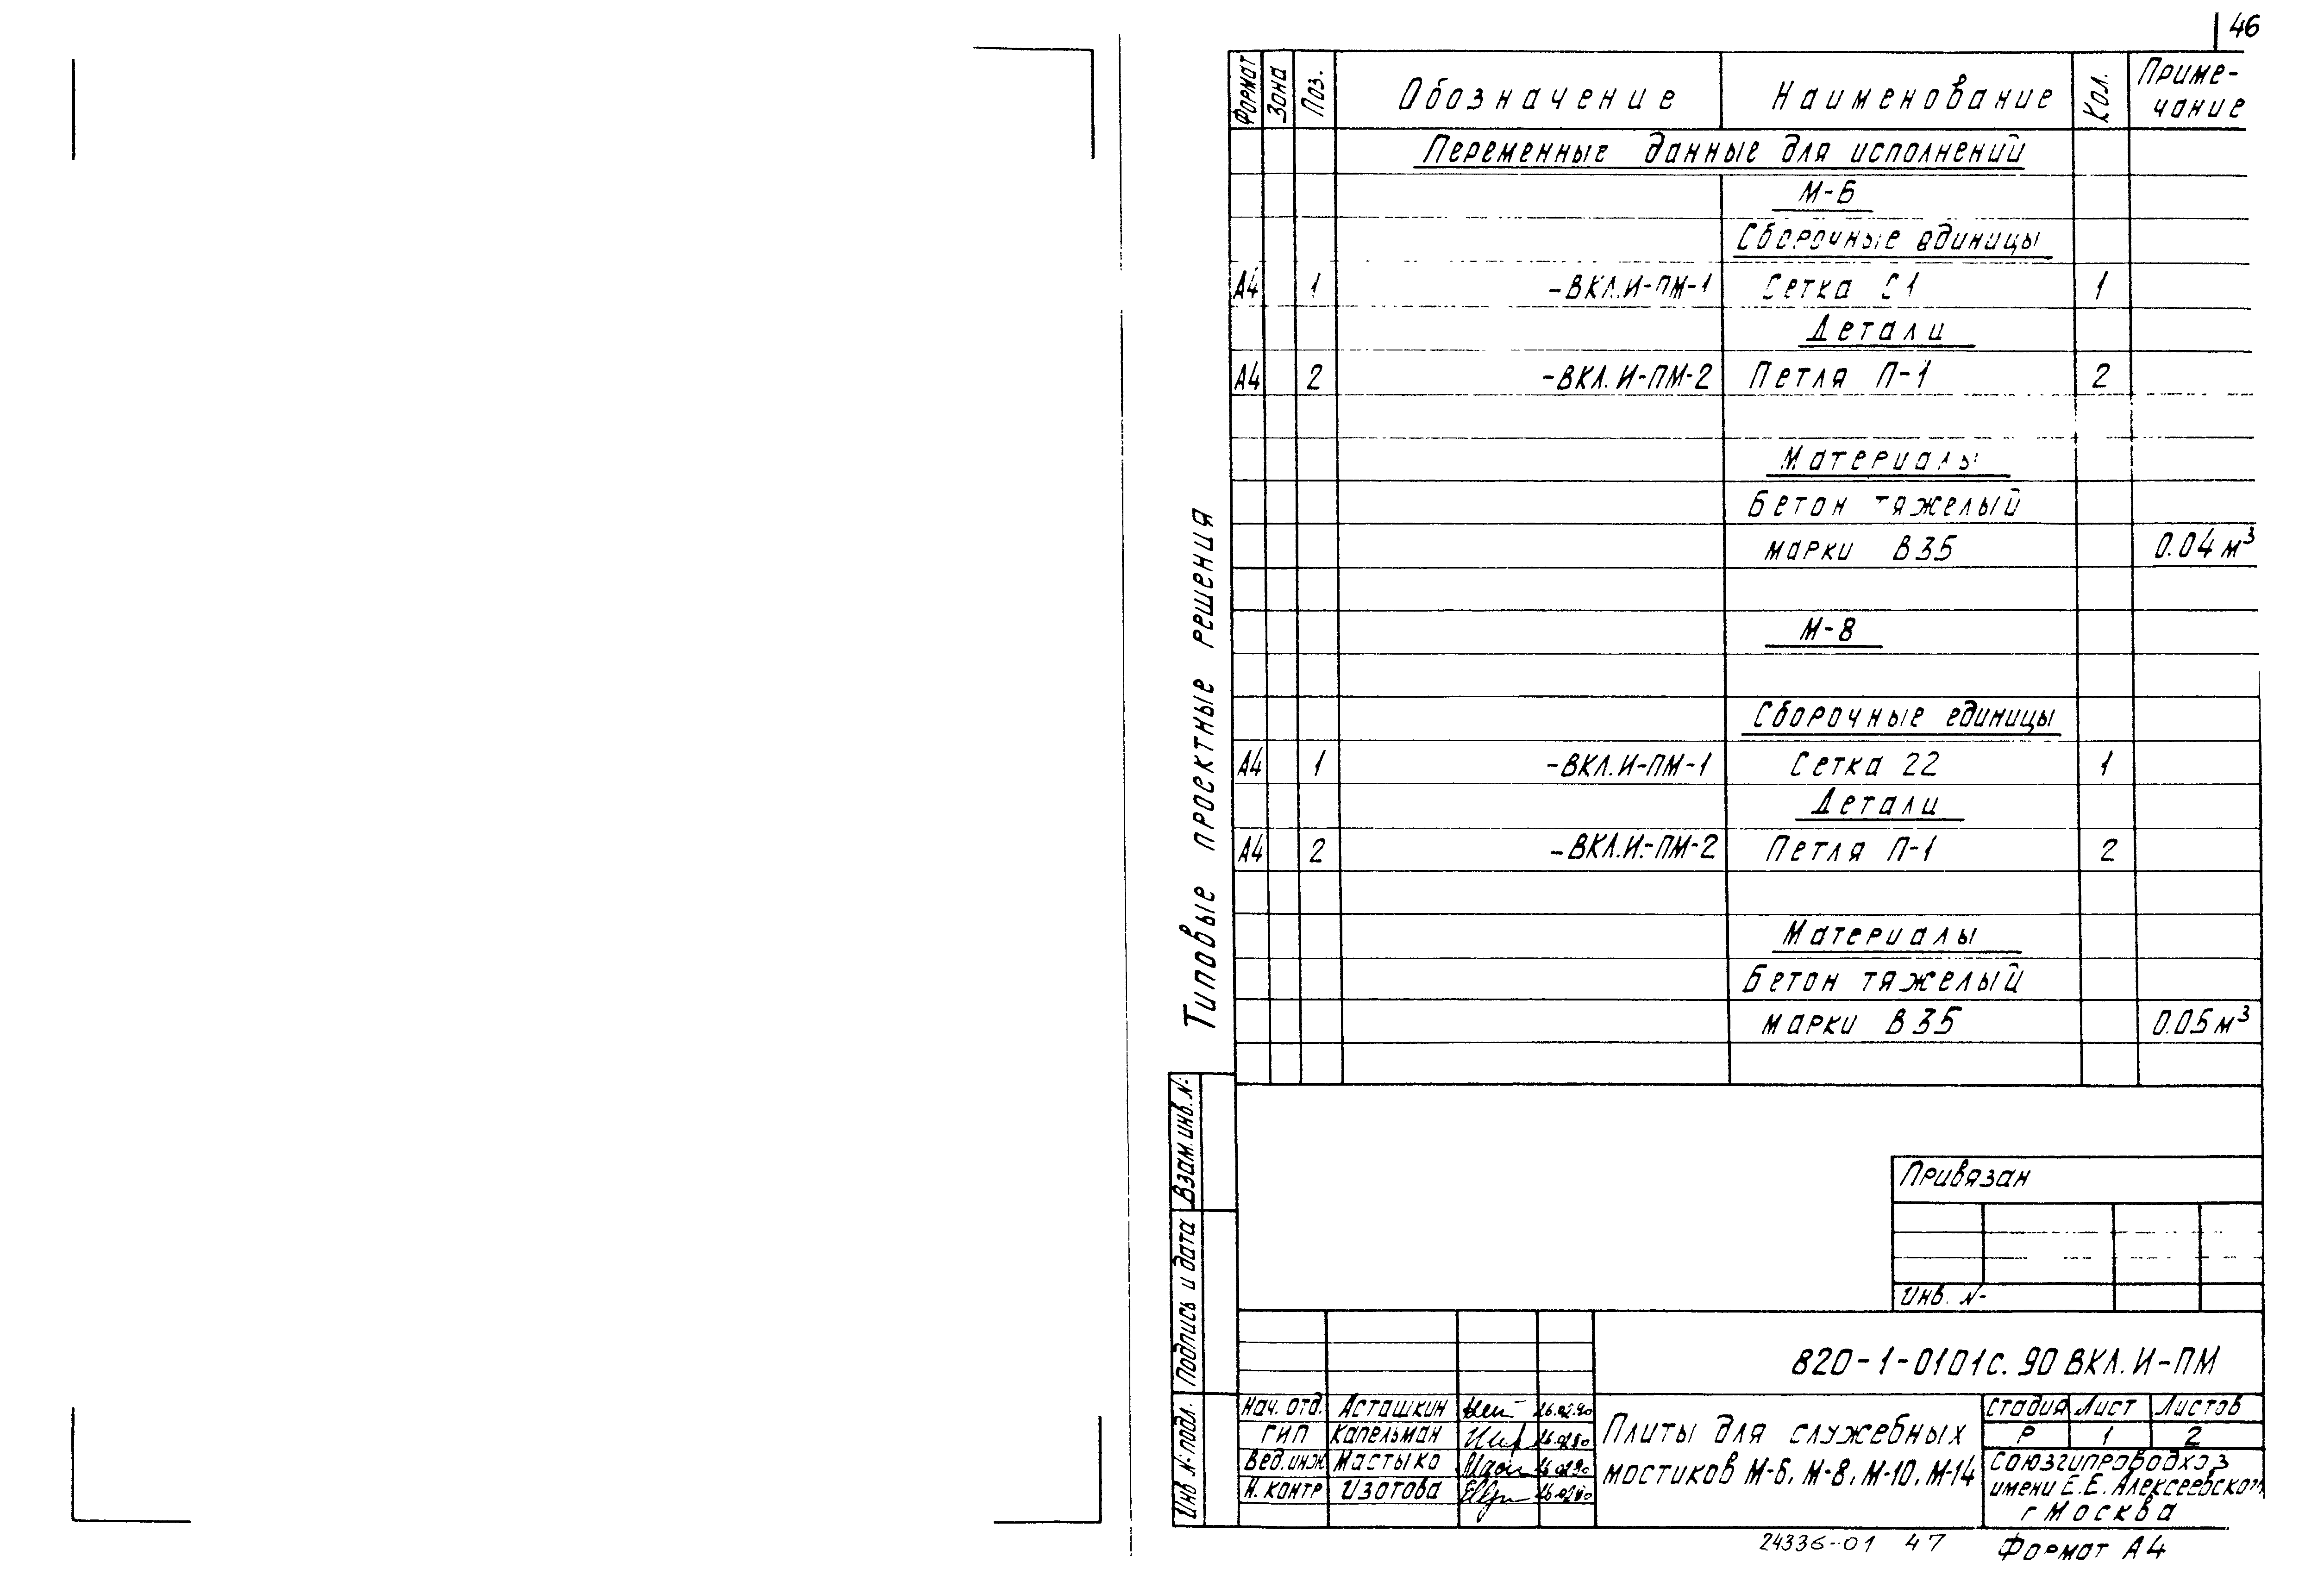 46
Формат Зона Поз. Обозначение Наименование Кол. Приме-
чание
Переменные данные для исполнений
М-6
Сборочные единицы
А4 1 -ВКЛ.И-ПМ-1 Сетка С1 1
Детали
А4 2 -ВКЛ.И-ПМ-2 Петля П-1 2
Материалы
Бетон тяжелый
марки В35 0.04 м³
М-8
Сборочные единицы
А4 1 -ВКЛ.И-ПМ-1 Сетка 22 1
Детали
А4 2 -ВКЛ.И.-ПМ-2 Петля П-1 2
Материалы
Бетон тяжелый
марки В35 0.05 м³
Типовые проектные решения
Взам.инв.N:
Подпись и дата
Инв N:подл.
Привязан
Инв. N-
820-1-0101с.90 ВКЛ.И-ПМ
Нач. отд. Асташкин 26.02.90
ГИП Капельман 26.02.90
Вед.инж Мастыко 26.02.90
Н.контр Изотова 26.02.90
Плиты для служебных
мостиков М-6, М-8, М-10, М-14
Стадия Лист Листов
Р 1 2
Союзгипроводхоз
имени Е.Е. Алексеевского
г Москва
24336-01 47
Формат А4